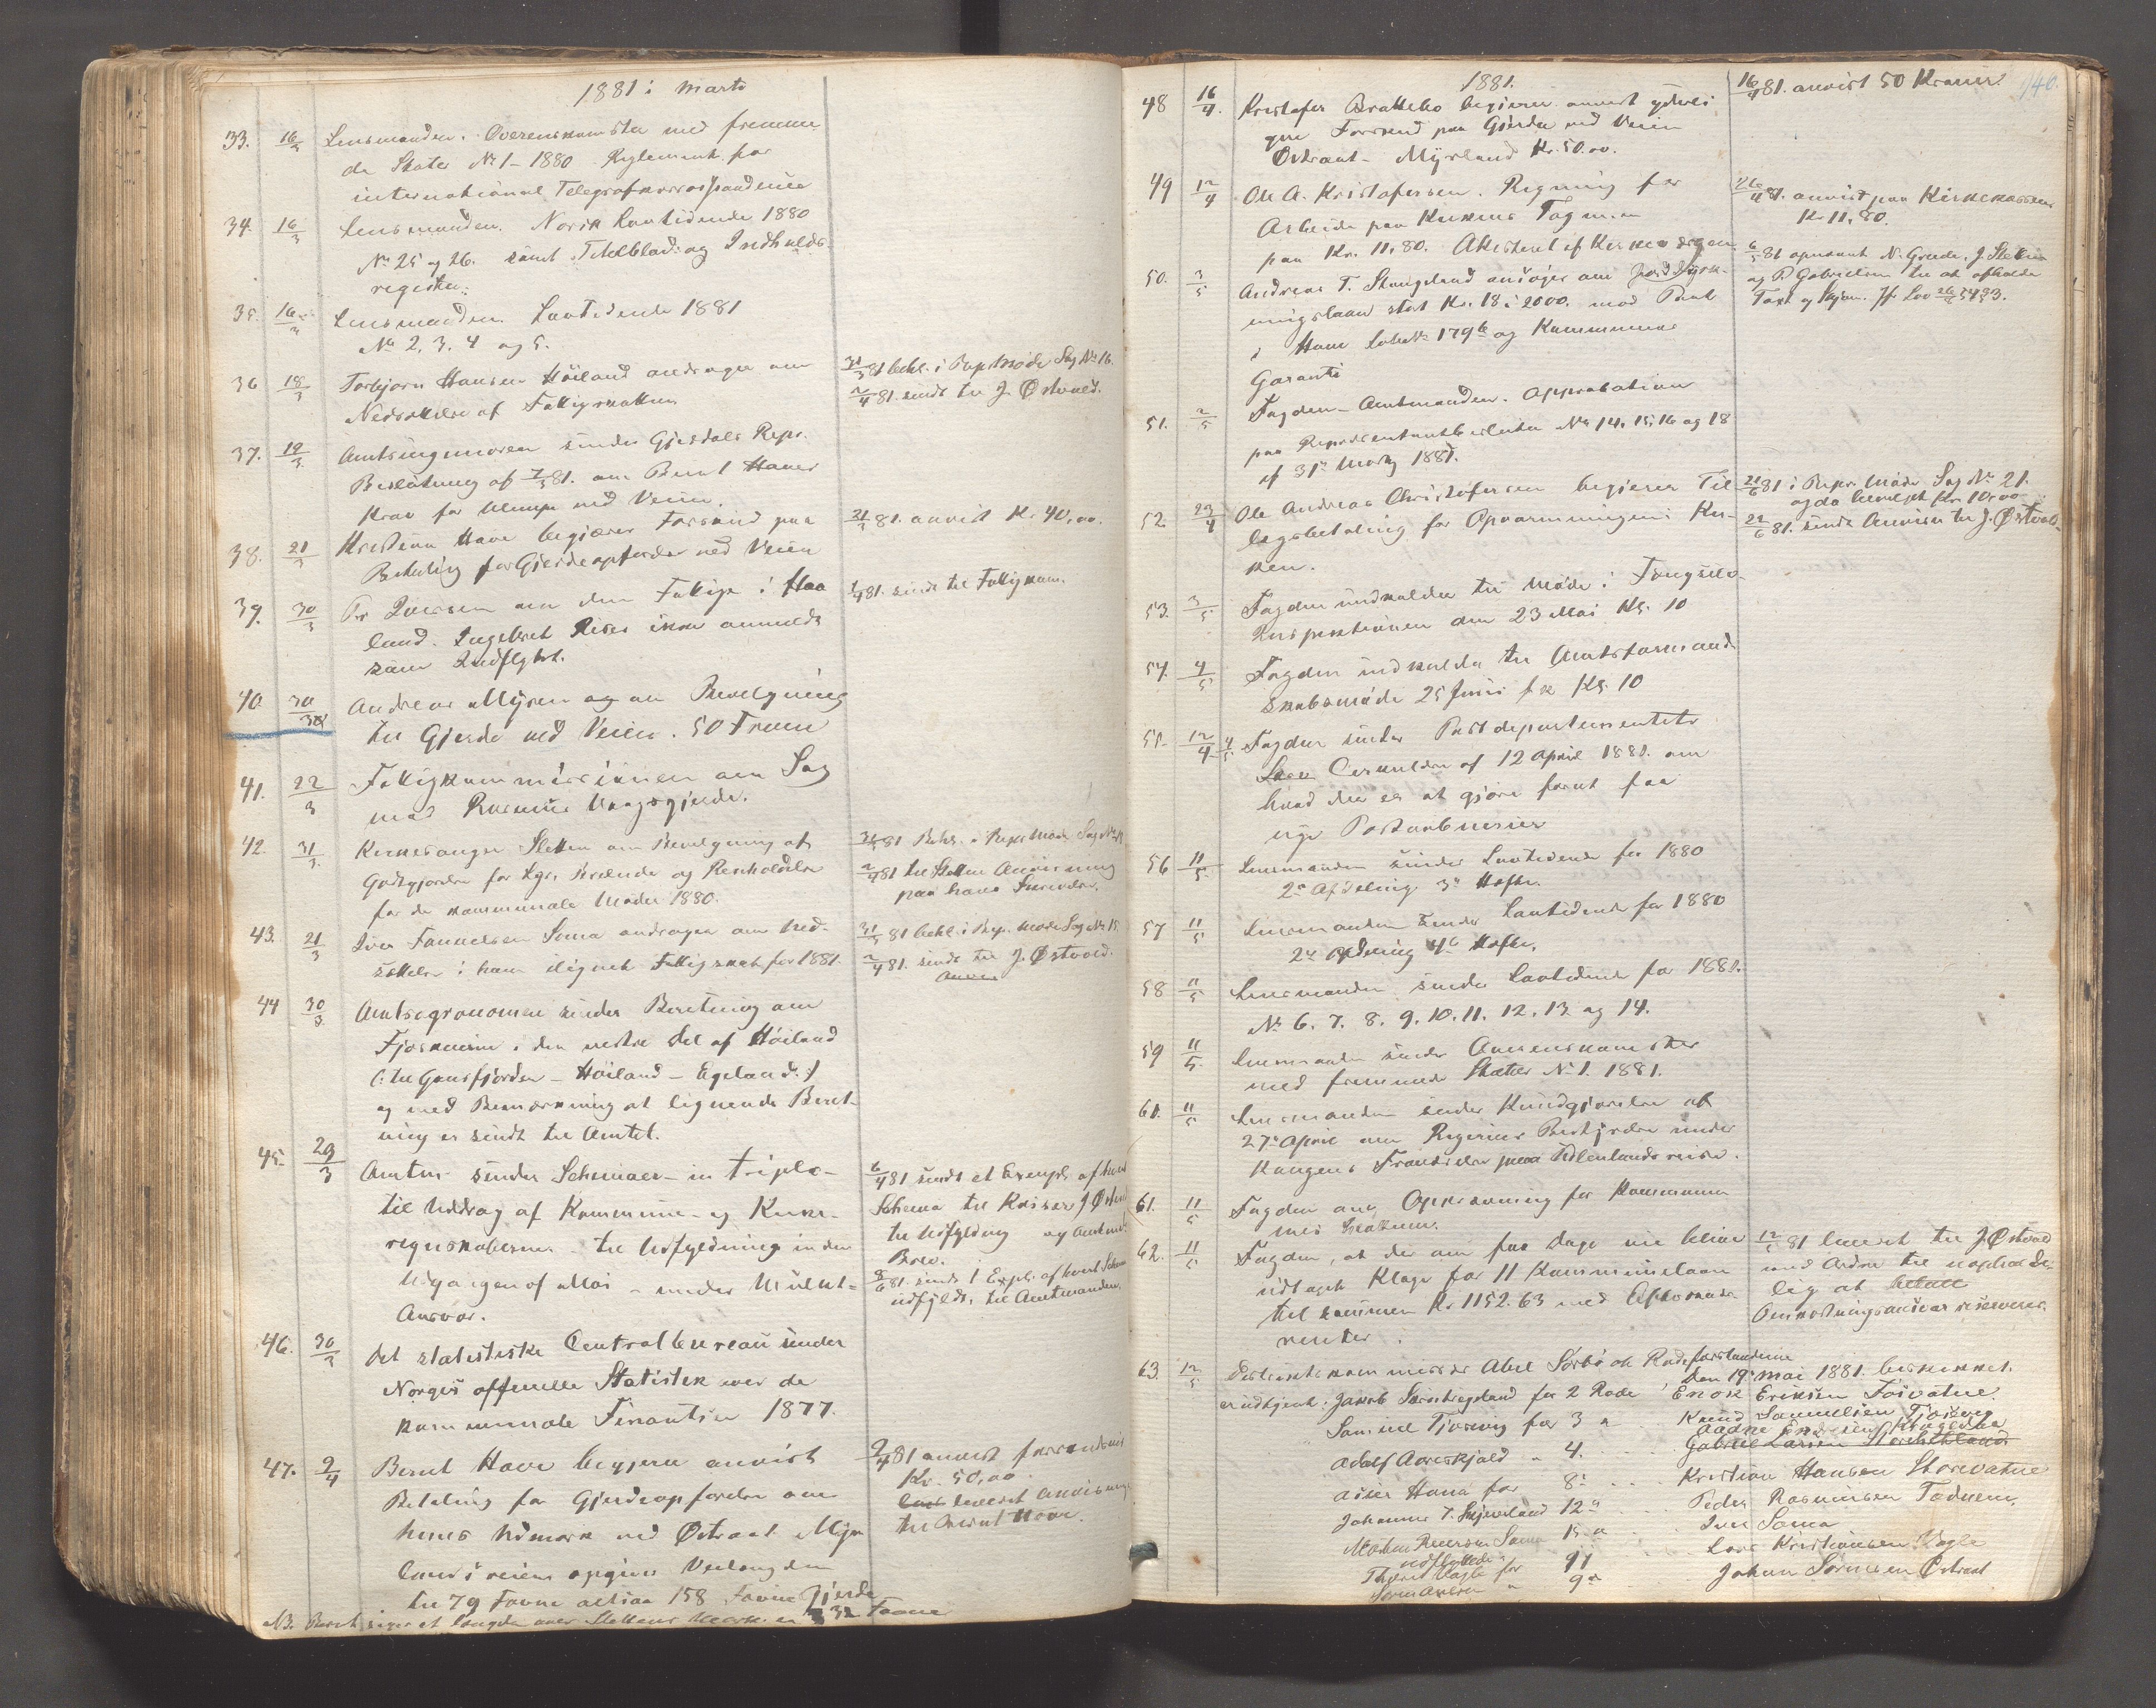 1881 i Marts
33. 16/3 Lensmanden. Overenskomster med fremme
de Stater No 1 - 1880 Reglement for
international Telegrafkorrespondence
34. 16/3 Lensmanden. Norsk Lovtidende 1880
No 25 og 26. samt Titelblad og Indholds-
register.
35. 16/3 Lensmanden Lovtidende 1881
No 2, 3, 4 og 5.
36 18/3 Torbjørn Hansen Høiland andrager om
Nedsættelse af Fattigskatten
31/3 81 behl. i Rep Møde Sag No 16.
2/4 81. sendt til J. Østvold.
37. 19/3 Amtsingeniøren sender Gjesdals Repr.
Beslutning af 7/3 81. om Bernt Haves
Krav for Ulempe ved Veien.
38. 21/3 Kristian Have begjærer Forskud paa
Betaling for Gjerdeopførelse ved Veien
21/3 81. anvist Kr 40,00.
39. 30/3 Per Iversen om den Fattige i Haa
land. Ingebret Reses ikke anmeldt
som Indflyttet.
1/4 81. sendt til Fattigkom.
40. 30/3 Andreas Myren og om Bevilgning
til Gjerde ved Veien. 50 Favne
41. 22/3 Fattigkommissionen om Sag
mod Rasmus Vaagsgjerde.
42. 31/3 Kirkesanger Sletten om Bevilgning af
Godtgjørelse for Lys, Brænde og Renholdelse
for de kommunale Møder 1880.
31/3 81 Behl. i Repr Møde Sag No
2/4 81 til Sletten Anvisning
paa hans Skrivelse.
43. 21/3 Iver Tønnessen Soma andrager om Ned-
sættelse i ham ilignet Fattigskat for 1881.
31/3 81 behl. i Rep. Møde Sag No 15
2/4 81. sendt til J. Østvold.
44 30/3 Amtsagronomen sender Beretning om
Fjøskuirne i den vestre Del af Høiland
(: til Gansfjorden - Høiland - Egeland :)
og med Bemærkning at lignende Beret-
ning er sendt til Amtet.
45. 29/3 Amtm. sender Schemaer in triplo-
til Uddrag af Kommune- og Kirke-
regnskaberne - til Udfyldning inden
Udgangen af Mai - under Mulkt-
Ansvar.
6/4 81 sendt et Exempl. af hvert
Schema til Kasserer J Østvold
til Udfyldning og Amtmd.
Brev.
8/6 81. sendt 1 Expl. af hvert Schema
udfyldt, til Amtmanden.
46. 30/3 Det statistiske Centralbureau sender
Norges officielle Statistik over de
kommunale Finantser 1877.
47. 2/4 Bernt Have begjerer anvist
Betaling for Gjerdeopførelse om
hans Udmark ved Østraat Myr
land i veiens opgivne Veilængden
til 79 Favne altsaa 158 Favne Gjerde
2/4 81 anvist forskudsvis
Kr. 50,00.
leveret Anvisning
til Bernt Have.
NB. Bernt siger at længden over Slettens Mark er 32 Favne

1881. 140.
48 16/4. Kristofer Brattebo begjerer anvist yderli
gere Forskud paa Gjerde ved Veien
Østraat - Myrland Kr. 50.00.
16/4 81. anvist 50 Kroner.
49 12/4 Ole A. Kristofersen. Regning for
Arbeide paa Kirkens Tag m.m
paa Kr. 11,80. Attesteret af Kirkeværgen.
26/4 81. anvist paa Kirkekassen
Kr 11,80.
50. 3/5 Andreas T. Stangeland ansøger om Jorddyrk-
ningslaan stort Kr. 18 à 2000. mod Pant
i Hans Løbeno 179b og Kommunens
Garanti
6/5 81 opnævnt N. Grude, J. Sletten
og P. Gabrielsen til at afholde
Taxt og Skjøn. Jf Lov
51. 2/5 Fogden - Amtmanden. Approbation
paa Repræsentantbeslutn No 14, 15, 16 og 18
af 31te Marts 1881.
52. 23/4 Ole Andreas Christofersen begjerer Til
lægsbetaling for Opvarmningen i Kir-
ken.
21/6 81 i Repr. Møde Sag No 21.
ogda bevilget Kr. 10,00
22/6 81. sendt Anvisn til J. Østvold.
53. 3/5 Fogden indkalder til Møde i Fængsels-
Inspektionen den 23 Mai Kl. 10
54. 4/5 Fogden indkalder til Amtsformand
skabsmøde 25 Juni f k Kl. 10
55. 12/4 4/5 Fogden sender Postdepartementets
Cirkulære af 12 April 1881. om
hvad der er at gjøre forat faa
nye Postaabnerier
56 11/5 Lensmanden sender Lovtidende for 1880
2n Afdeling 3e Hefte.
57 11/5 Lensmanden sender Lovtidende for 1880
2n Afdeling 4e Hefte.
58 11/5 Lensmanden sender Lovtidende for 1881.
No 6. 7. 8. 9. 10. 11. 12. 13 og 14.
59 11/5 Lensmanden sender Overenskomster
med fremmede Stater No 1. 1881.
61. 11/5 Lensmanden sender Kundgjørelse af
27e April om Regjerings Bestyrelse under
Kongens Fraværelse paa Udenlandsreise.
61. 11/5 Fogden om Oppebæring for Kommunen
med Skatten.
62. 11/5 Fogden, at der om faa Dage vil blive
udtaget Klage for 11 Kommunelaan
til sammen Kr 1152.63 med Efterskuds
renter.
12/5 81 leveret til J. Østvold
med Ordre til uopholde-
lig at betale
Omkostningsansvar reserveres.
63. 12/5 Distriktskommissær Abel Sørbø ok Rodeforstanderne
Den 19 Mai 1881. beskikket.
er udtjent: Jakob Skjæveland for 2 Rode Enok Eriksen Foisvatne
Samuel Tjosvig for 3 " Knud Samuelsen Tjosevig
Adolf Aareskjold " 4. Gabriel Larsen
Asser Hana for 8: Kristian Hansen Storevatne
Johannes T. Skjæveland 12" Peder Rasmussen Todnem,
Soma 15 " Iver Soma
udflyttede
for 17 Lars Kristiansen Vagle
" 9n Johan Sørensen Østraat